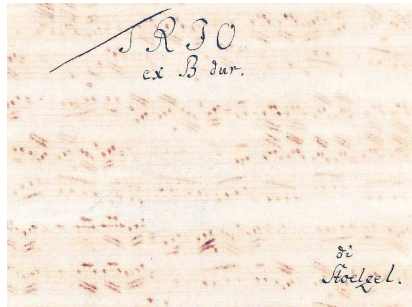 TRIO
ex B dur.
di
Stoelzel.